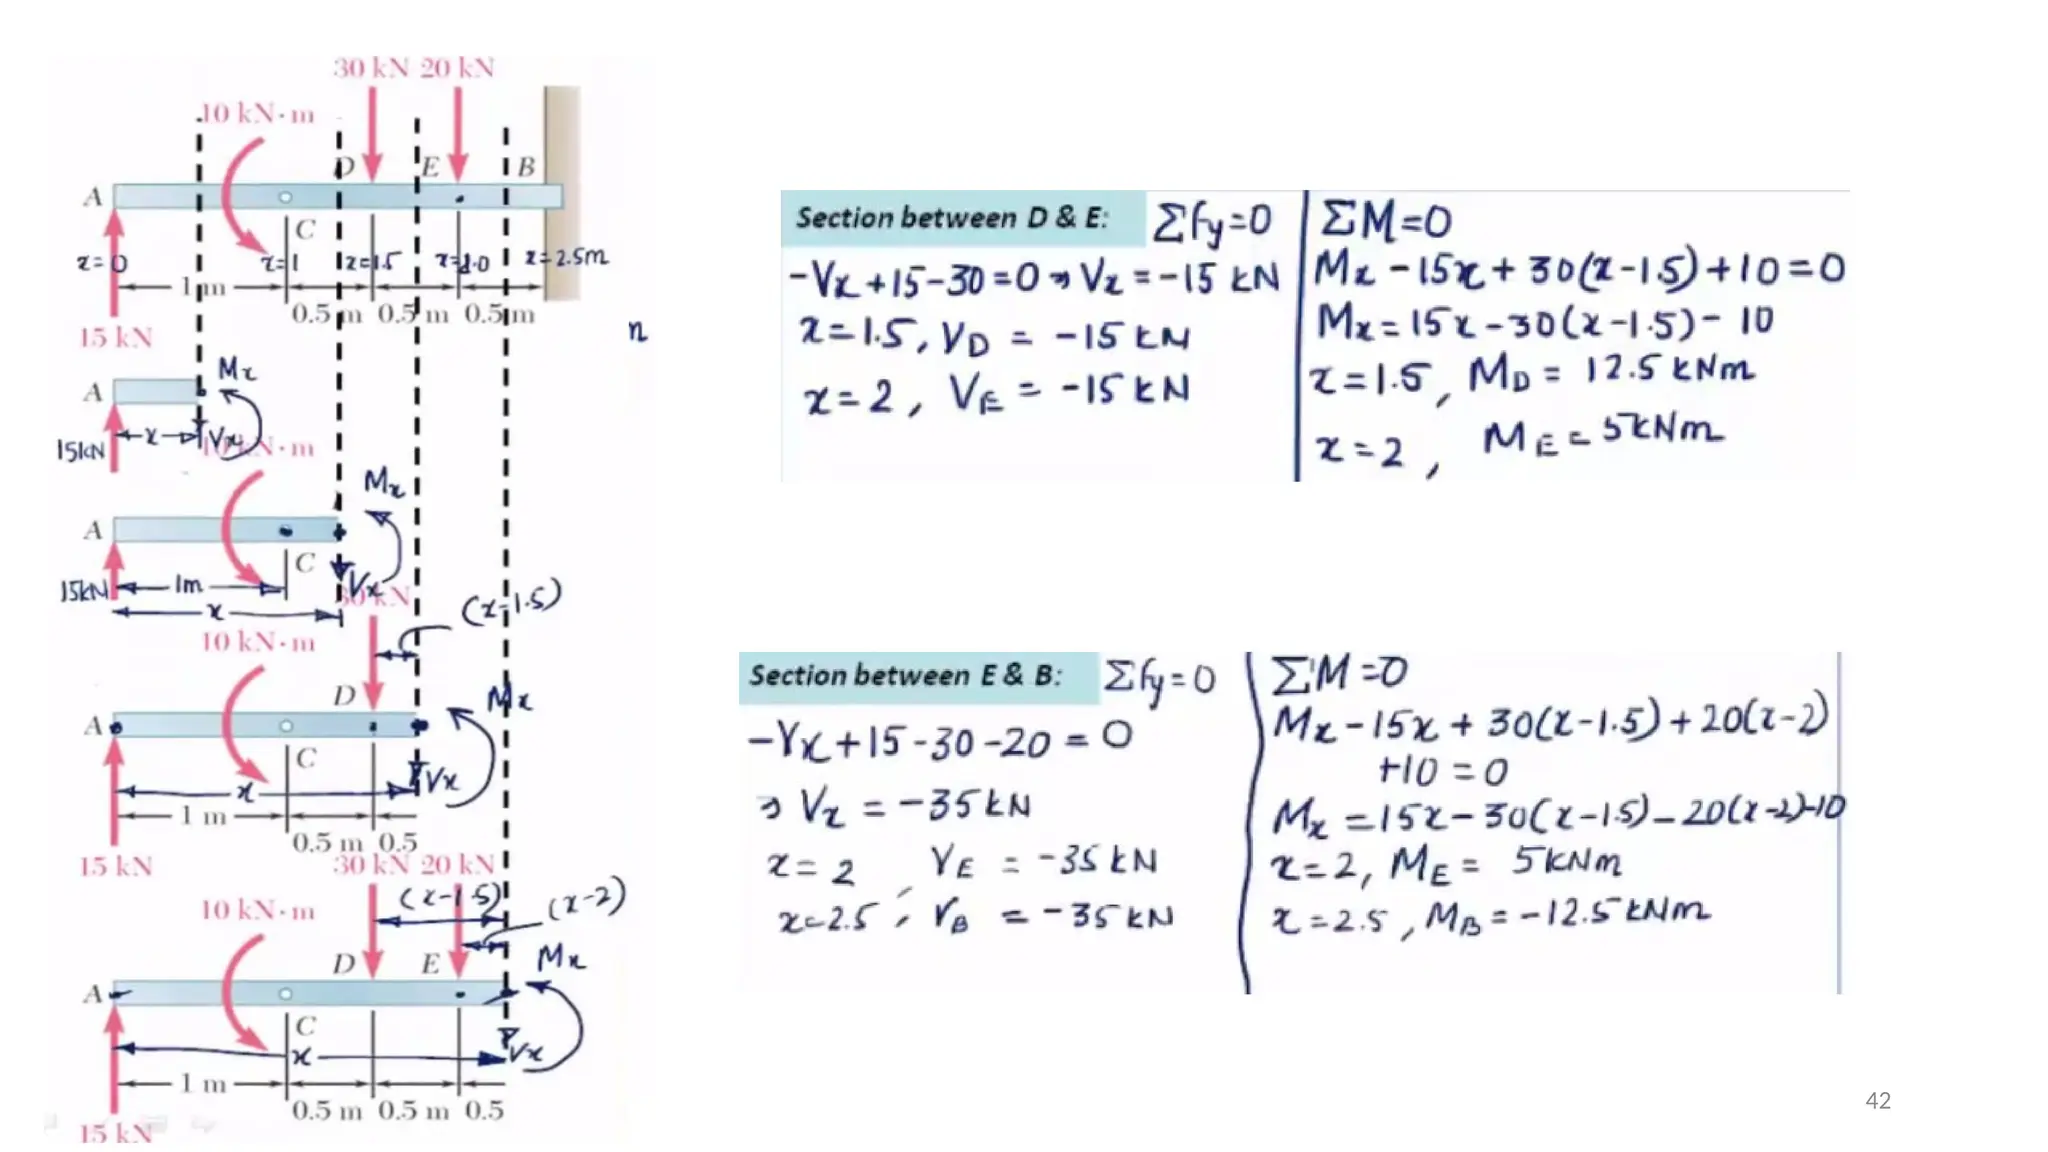 30 kN 20 kN
10 kN·m
D E B
A
C
x=0 x=1 x=1.5 x=2.0 x=2.5m
1 m
0.5 m 0.5 m 0.5 m
15 kN
n
Mx
A
15kN x Vx
10 kN·m
Mx
A
C
15kN 1m Vx
x
30 kN
(x-1.5)
10 kN·m
D Mx
A
C
x Vx
1 m
0.5 m 0.5
15 kN
30 kN 20 kN
(x-1.5) (x-2)
10 kN·m
D E Mx
A
C
x Vx
1 m
0.5 m 0.5 m 0.5
15 kN
Section between D & E: Σfy=0
-Vx+15-30=0 ⇒ Vx=-15 kN
x=1.5, VD = -15 kN
x=2, VE = -15 kN
ΣM=0
Mx-15x+30(x-1.5)+10=0
Mx=15x-30(x-1.5)-10
x=1.5, MD= 12.5 kNm
x=2, ME=5kNm
Section between E & B: Σfy=0
-Vx+15-30-20=0
⇒ Vx = -35kN
x=2 , VE = -35kN
x=2.5, VB = -35kN
ΣM=0
Mx-15x+30(x-1.5)+20(x-2)
+10=0
Mx=15x-30(x-1.5)-20(x-2)-10
x=2, ME= 5kNm
x=2.5, MB=-12.5kNm
42